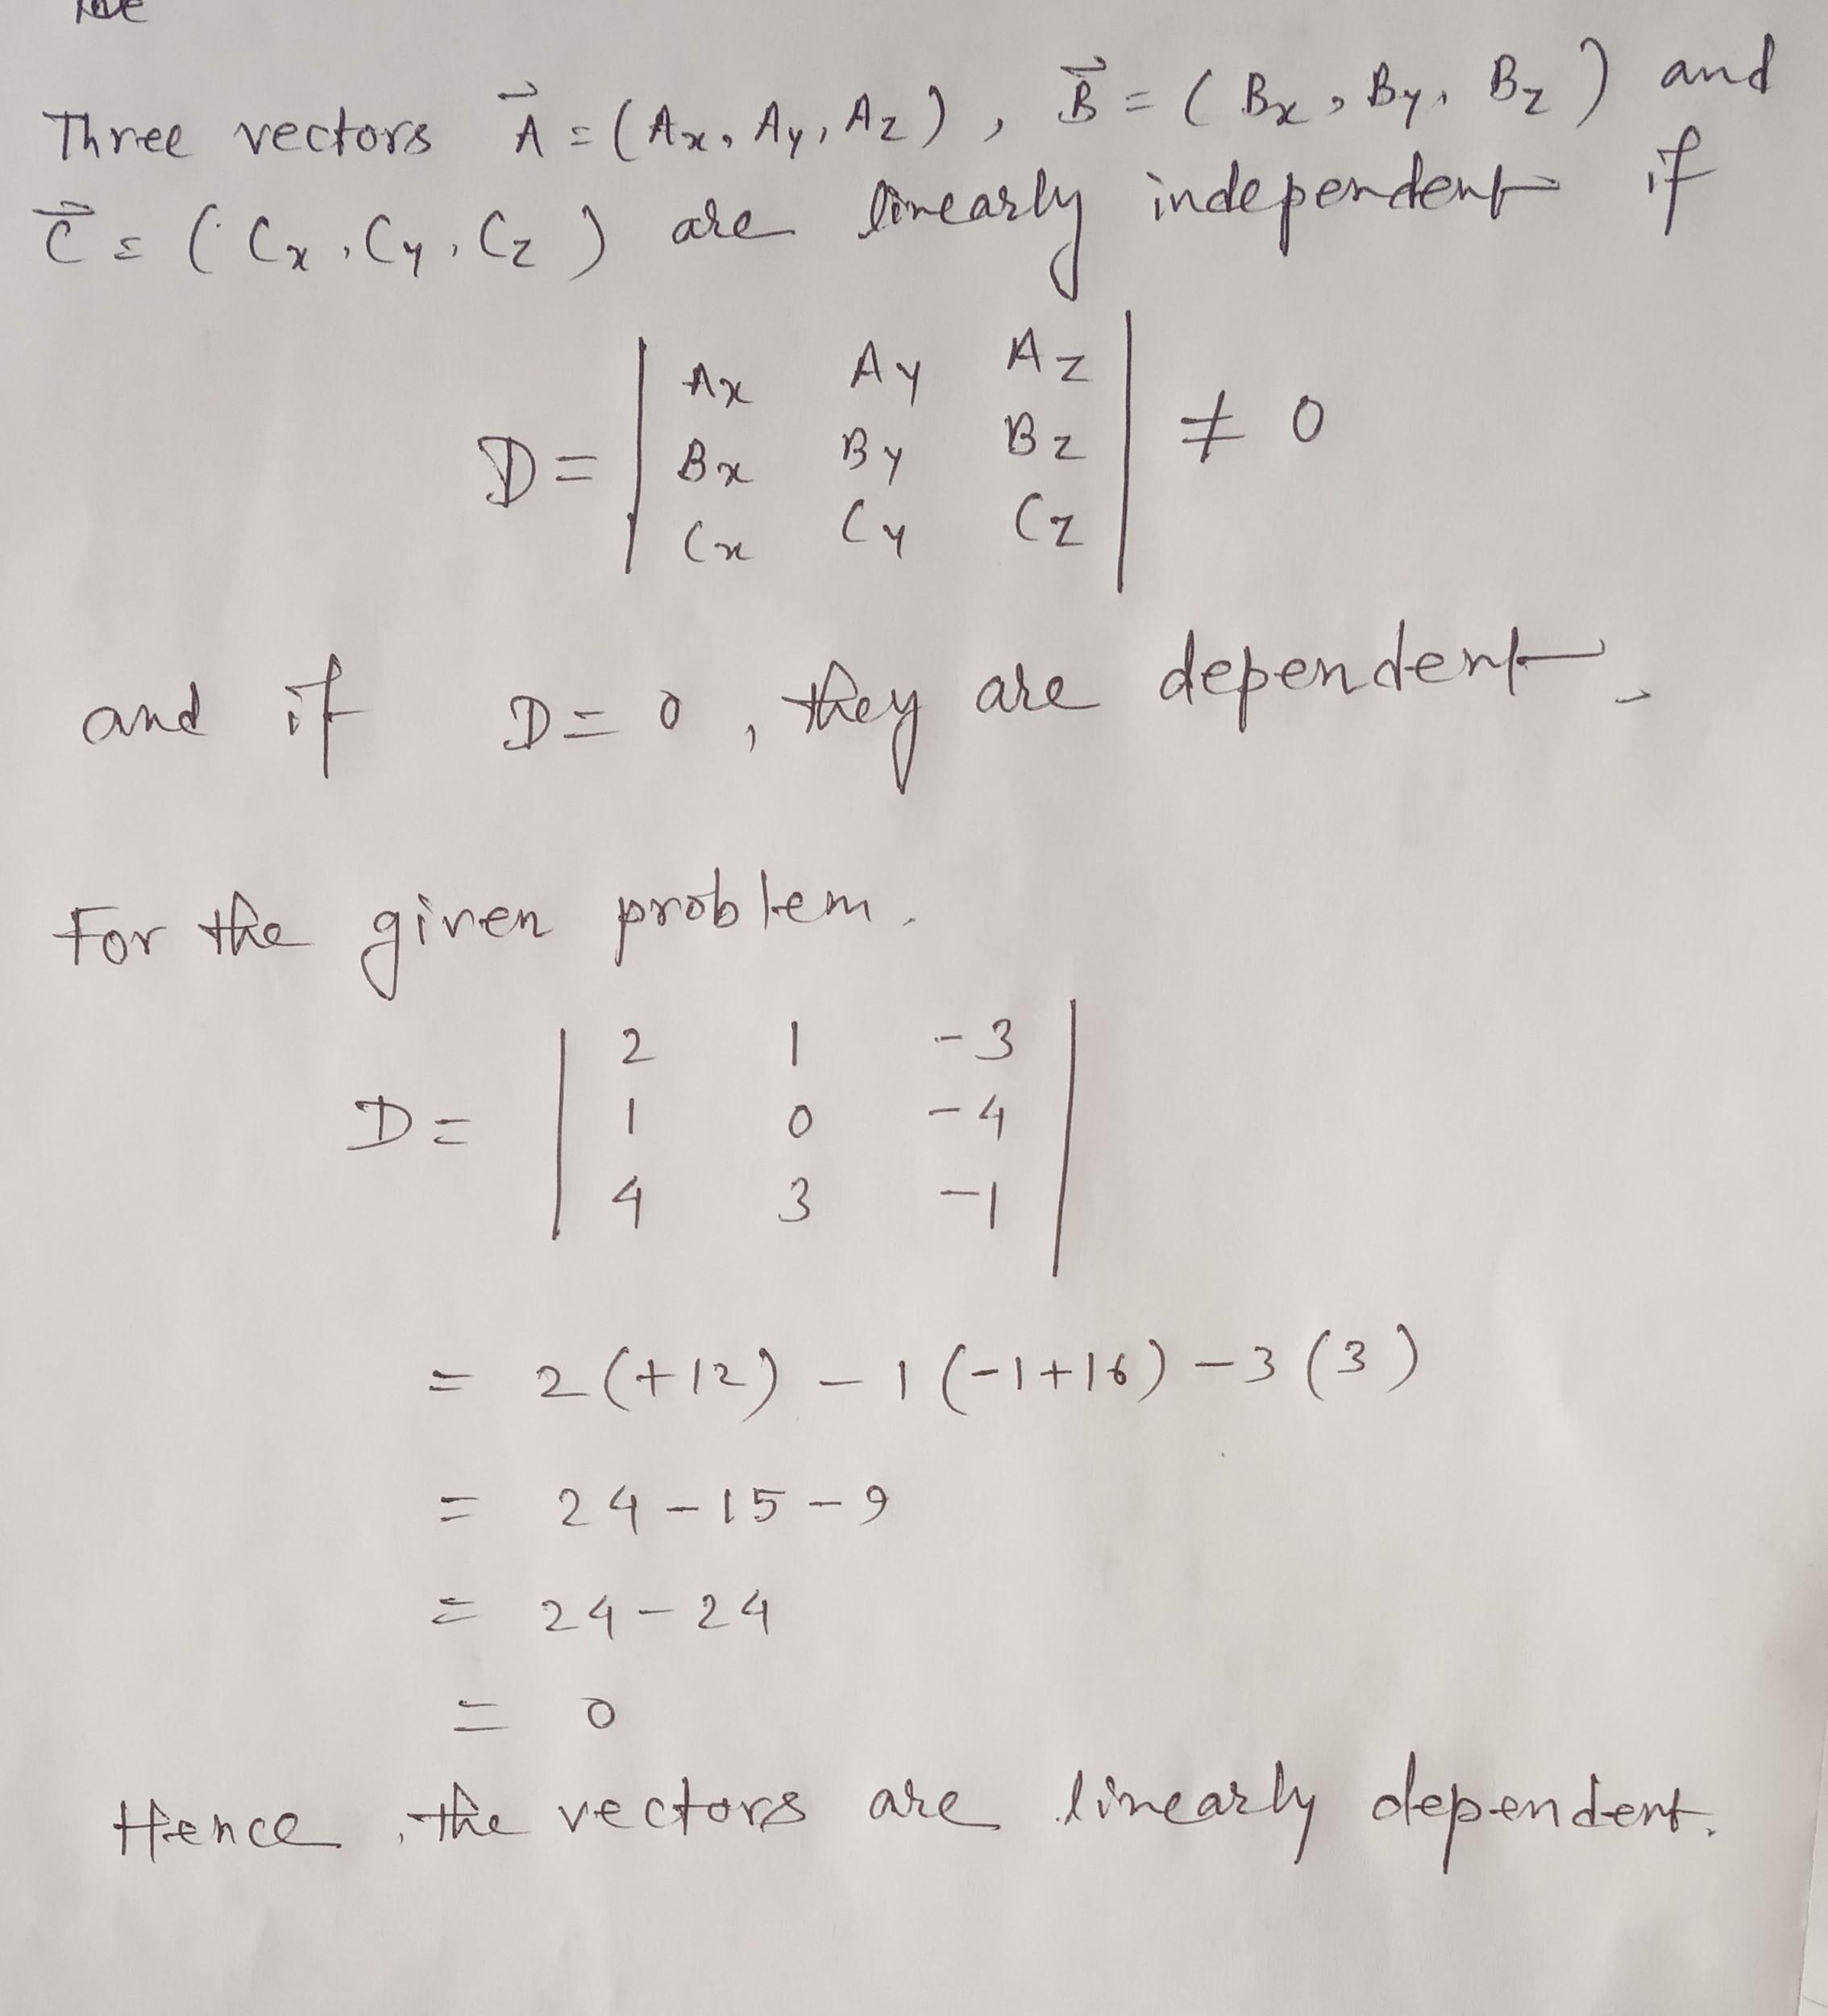 Three vectors A⃗ = (Ax, Ay, Az), B⃗ = (Bx, By, Bz) and
C⃗ = (Cx, Cy, Cz) are linearly independent if
Ax Ay Az
D = | Bx By Bz | ≠ 0
Cx Cy Cz
and if D = 0, they are dependent.
For the given problem.
2 1 -3
D = | 1 0 -4 |
4 3 -1
= 2(+12) - 1(-1+16) - 3(3)
= 24 - 15 - 9
= 24 - 24
= 0
Hence, the vectors are linearly dependent.